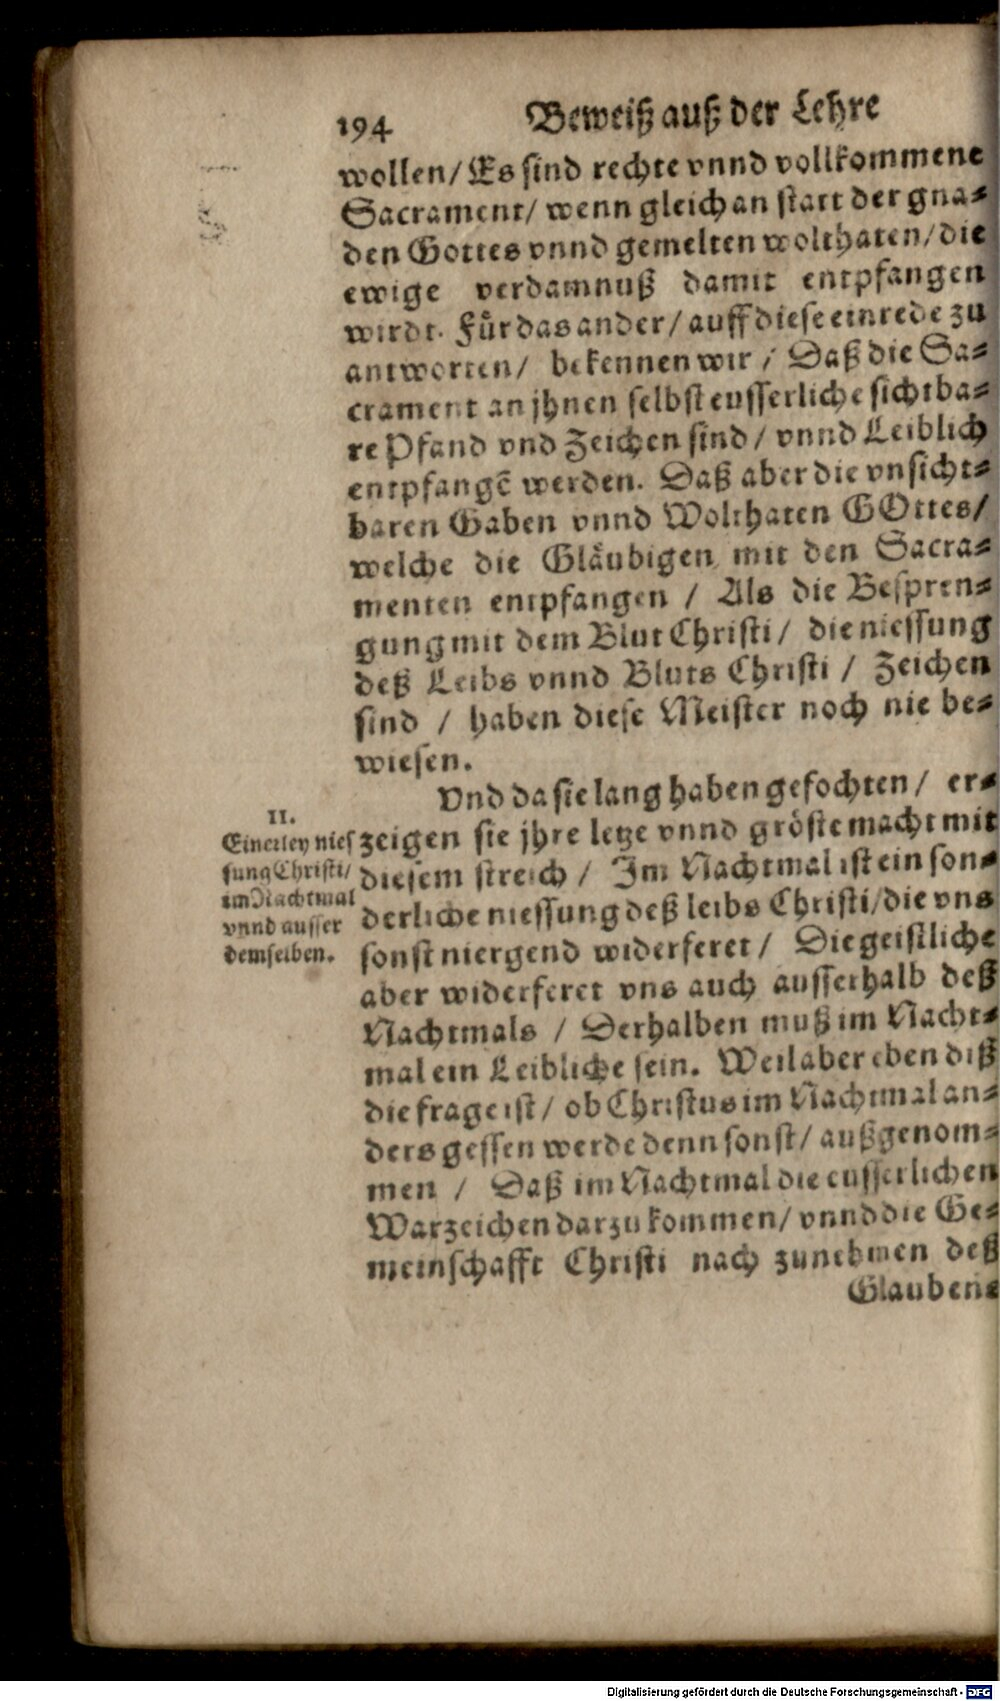 194 Beweiß auß der Lehre
wollen/ Es sind rechte vnnd vollkommene
Sacrament/ wenn gleich an statt der gna⸗
den Gottes vnnd gemelten wolthaten/ die
ewige verdamnuß damit entpfangen
wirdt. Für das ander/ auff diese einrede zu
antworten/ bekennen wir / Daß die Sa⸗
crament an jhnen selbst eusserliche sichtba⸗
re Pfand vnd Zeichen sind/ vnnd Leiblich
entpfangẽ werden. Daß aber die vnsicht⸗
baren Gaben vnnd Wolthaten GOttes/
welche die Gläubigen mit den Sacra⸗
menten entpfangen / Als die Bespren⸗
gung mit dem Blut Christi/ die niessung
deß Leibs vnnd Bluts Christi / Zeichen
sind / haben diese Meister noch nie be⸗
wiesen.
Vnd da sie lang haben gefochten/ er⸗
zeigen sie jhre letze vnnd gröste macht mit
diesem streich / Im Nachtmal ist ein son⸗
derliche niessung deß leibs Christi/ die vns
sonst niergend widerferet/ Die geistliche
aber widerferet vns auch ausserhalb deß
Nachtmals / Derhalben muß im Nacht⸗
mal ein Leibliche sein. Weil aber eben diß
die frage ist/ ob Christus im Nachtmal an⸗
ders gessen werde denn sonst/ außgenom⸗
men / Daß im Nachtmal die eusserlichen
Warzeichen darzu kommen/ vnnd die Ge⸗
meinschafft Christi nach zunehmen deß
Glaubens
II.
Einerley nies
sung Christi/
im Nachtmal
vnnd ausser
demselben.
Digitalisierung gefördert durch die Deutsche Forschungsgemeinschaft - DFG